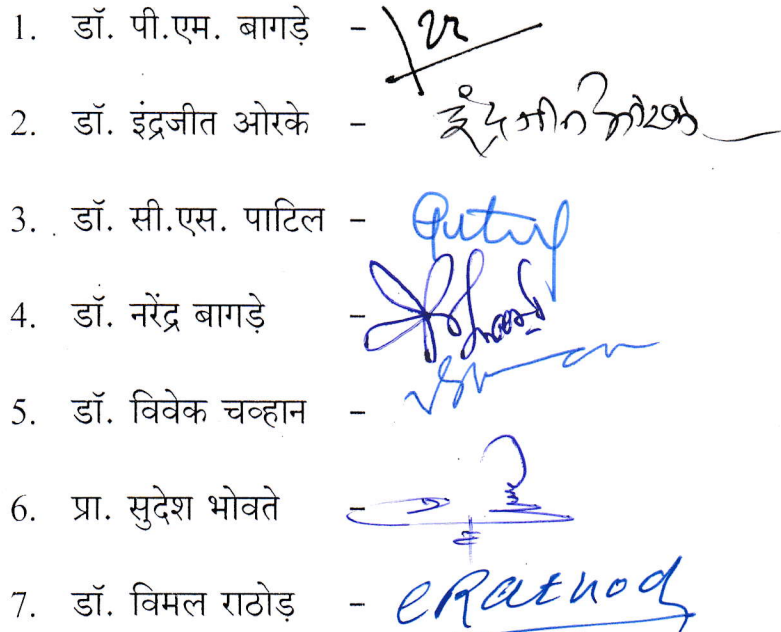 1. डॉ. पी.एम. बागडे -
2. डॉ. इंद्रजीत ओरके - इंद्रजीत ओरके
3. डॉ. सी.एस. पाटिल -
4. डॉ. नरेंद्र बागडे़ -
5. डॉ. विवेक चव्हान -
6. प्रा. सुदेश भोवते -
7. डॉ. विमल राठोड़ - eRathod